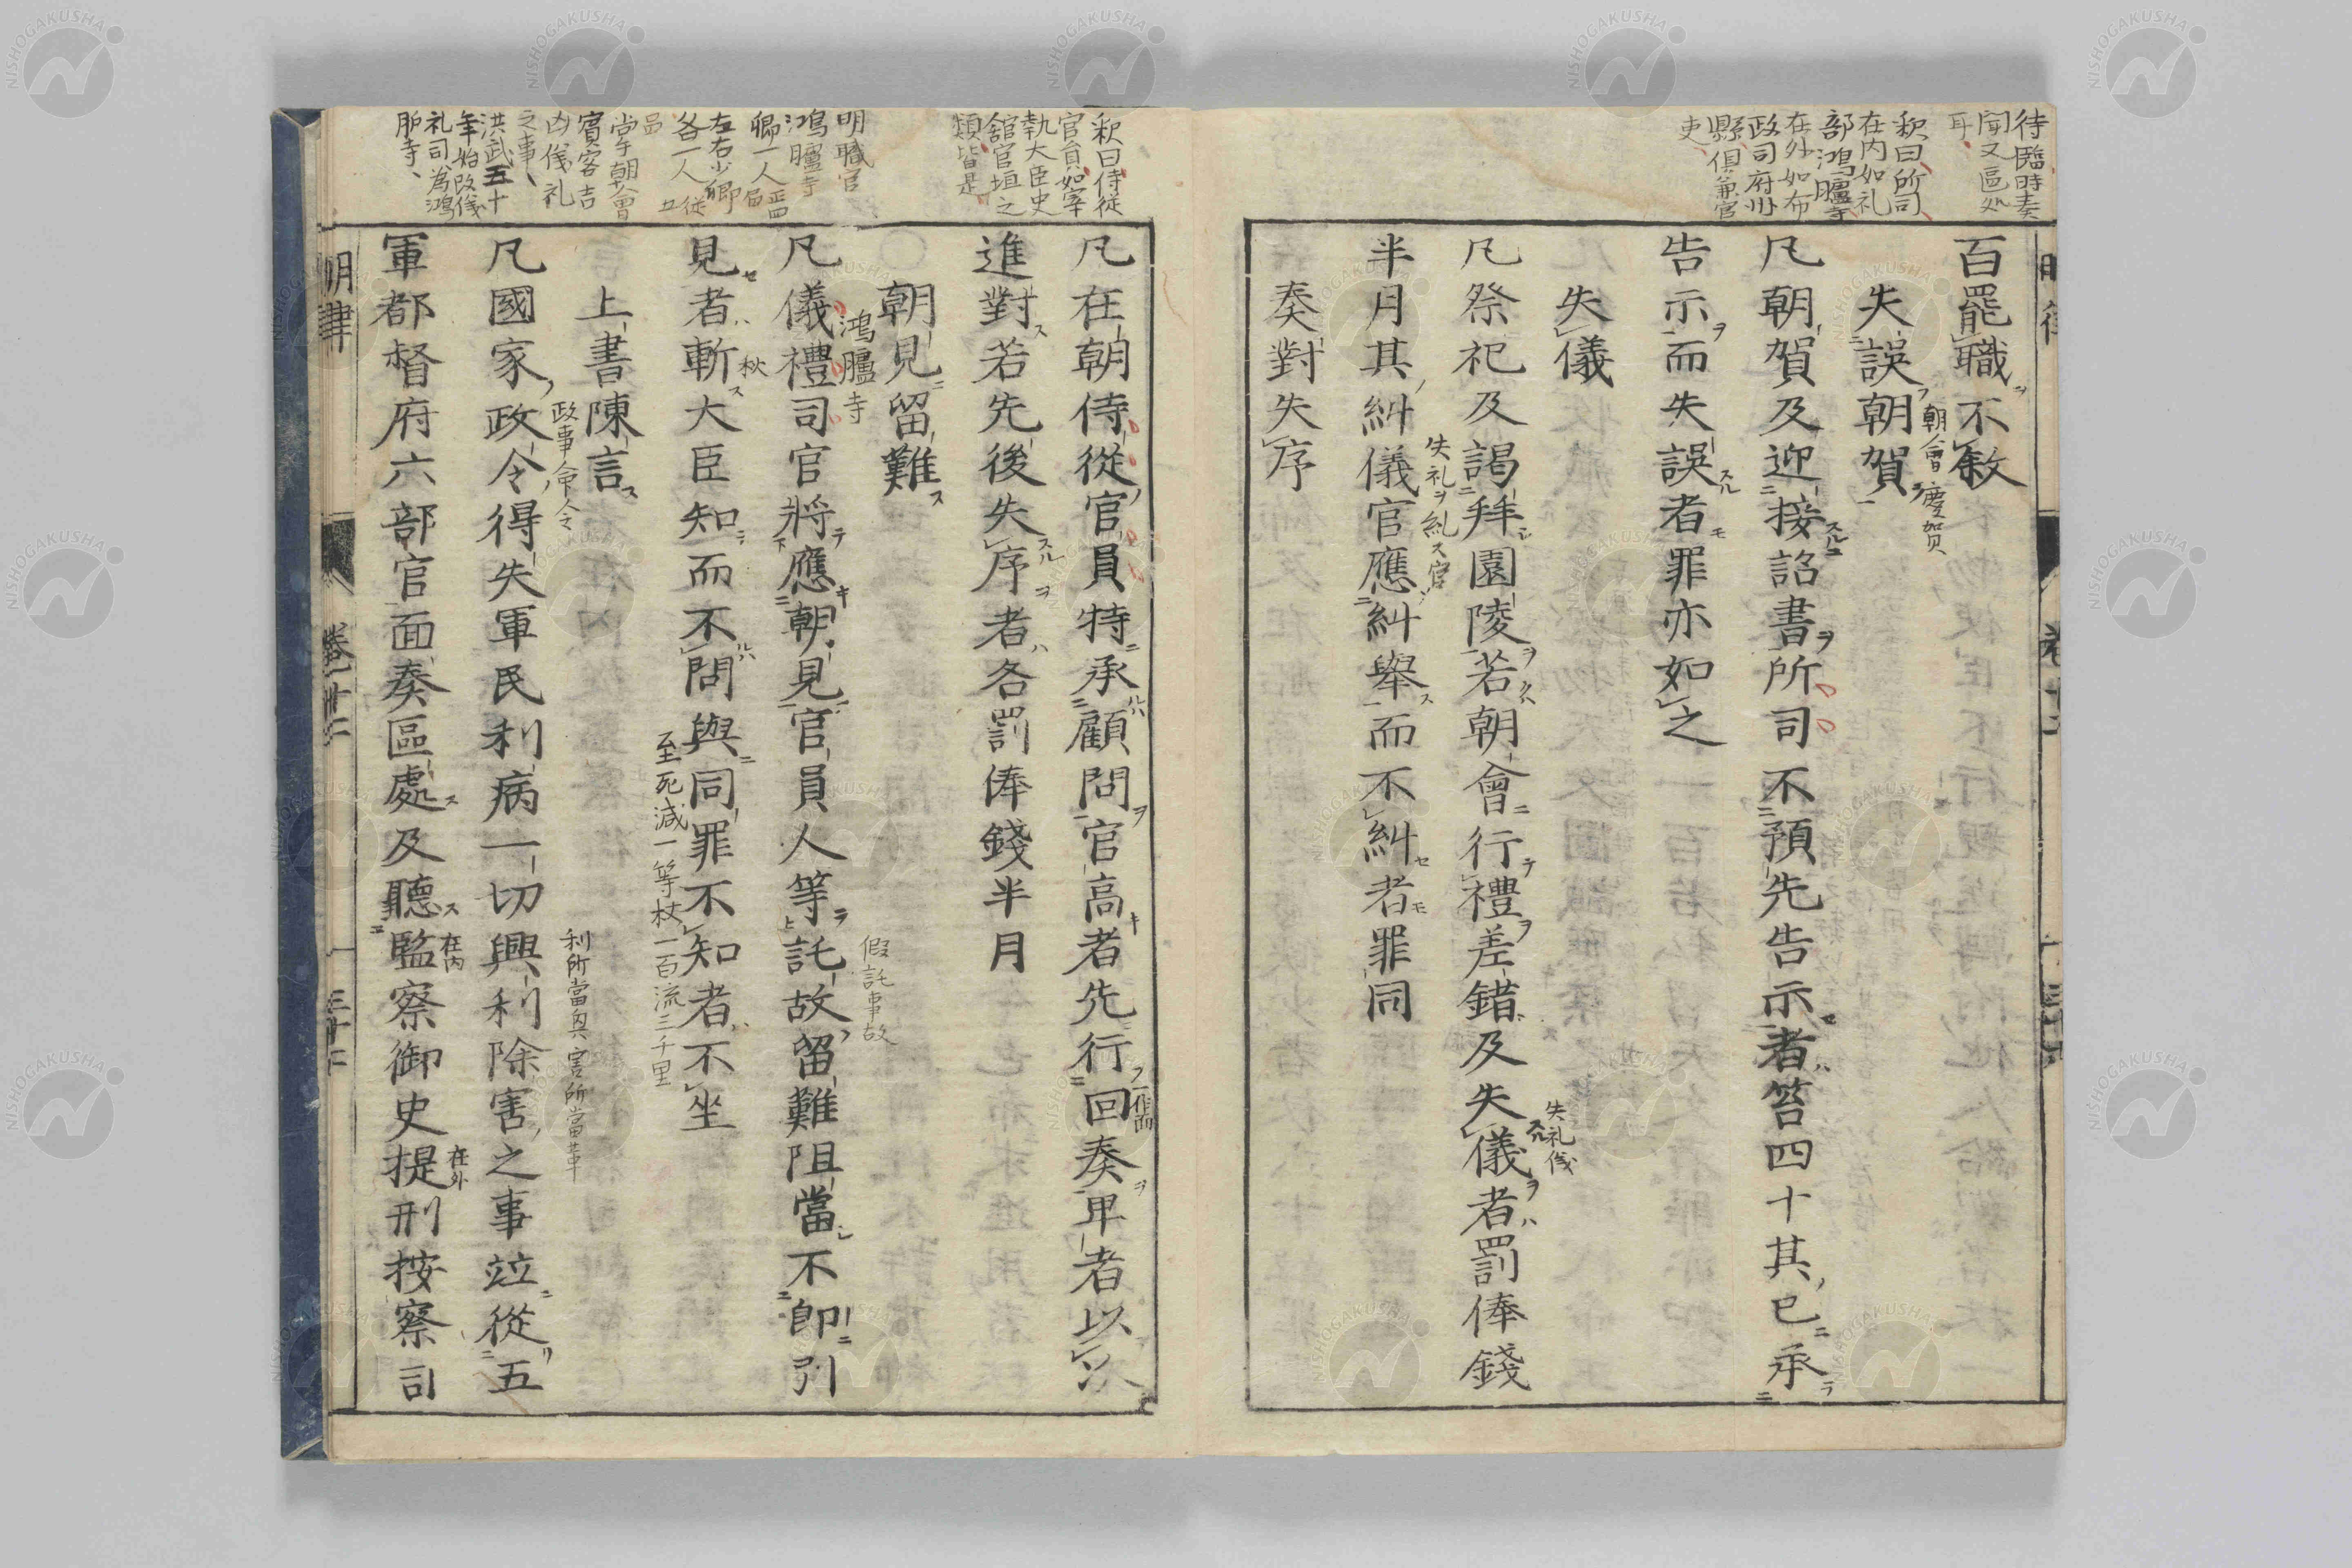 待臨時奏
聞又區処
耳
釈曰所司
在内如礼
部鴻臚寺
在外如布
政司府州
縣俱兼官
吏
百罷職不敘
失誤朝賀
朝會慶賀
凡朝賀及迎接詔書所司不預先告示者笞四十其已承
告示而失誤者罪亦如之
失儀
凡祭祀及謁拜園陵若朝會行禮差錯及失儀者罰俸錢
失礼儀
半月其糾儀官應糾舉而不糾者罪同
失礼ヲ糺ス官
奏對失序
釈曰侍従
官員如宰
執大臣史
舘官垣之
類皆是
明職官
鴻臚寺
卿一人
左右少卿
各一人
掌朝會
賓客吉
凶儀礼
之事
洪武
年始改儀
礼司為鴻
胪寺
凡在朝侍從官員特承顧問官高者先行回奏卑者以次
進對若先後失序者各罰俸錢半月
朝見留難
凡儀禮司官將應朝見官員人等託故留難阻當不即引
鴻臚寺
假託事故
見者斬大臣知而不問與同罪不知者不坐
秋
至死減一等杖一百流三千里
上書陳言
凡國家政令得失軍民利病一切興利除害之事竝從五
政事命令
利所當興害所當革
軍都督府六部官面奏區處及聽監察御史提刑按察司
在内
在外
明律
卷十二
三十二